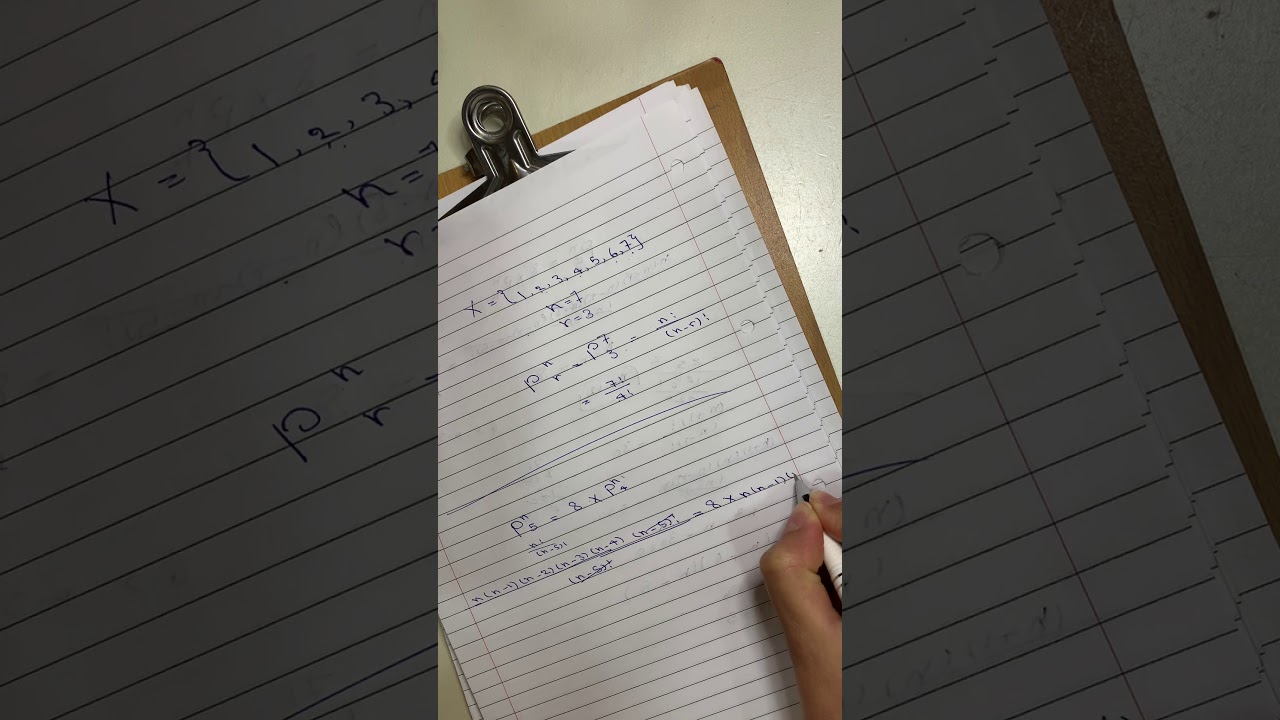 X = {1, 2, 3, 4, 5, 6, 7}
n = 7
r = 3
P^n_r = P^7_3 = n! / (n-r)!
= 7! / 4!
P^n_5 = 8 × P^n_4
n! / (n-5)!
n(n-1)(n-2)(n-3)(n-4) (n-5)! / (n-5)! = 8 × n(n-1)(